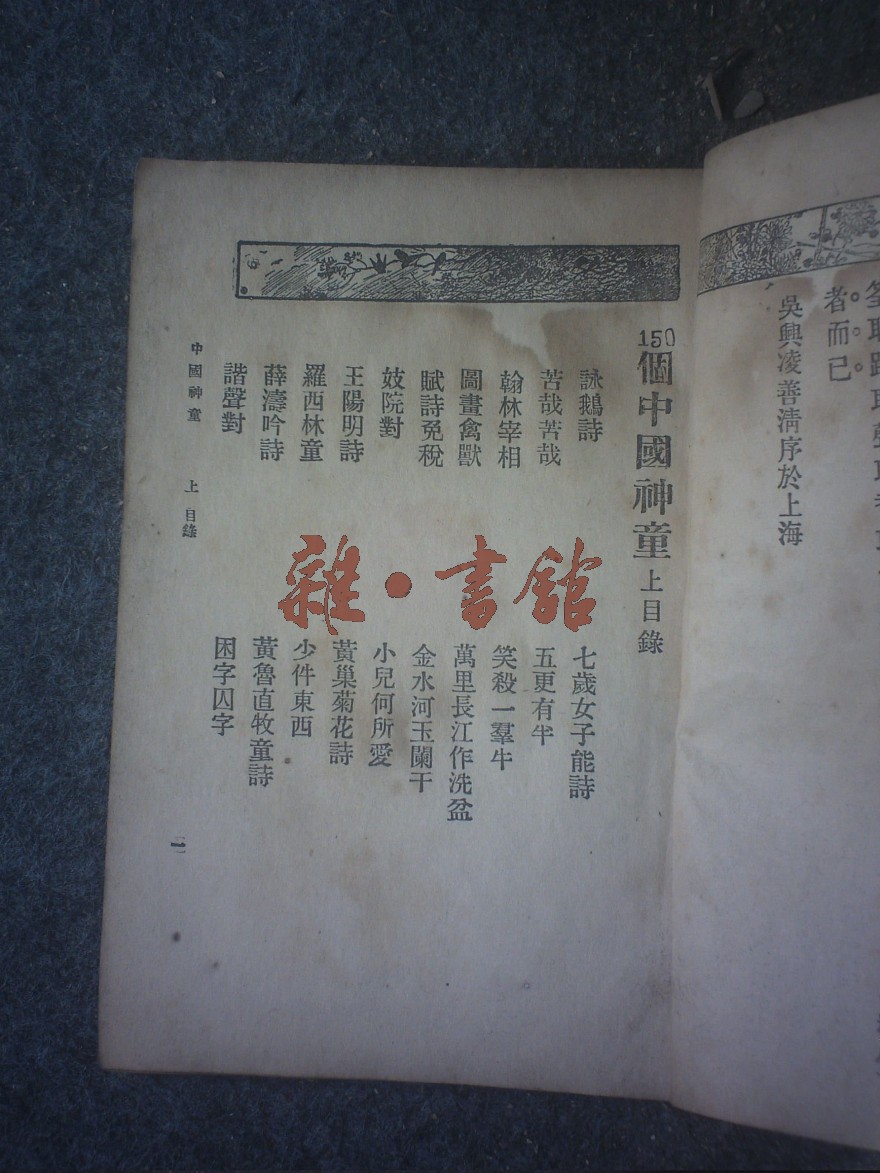 者而已
吳興凌善清序於上海
150個中國神童 上目錄
詠鵝詩 七歲女子能詩
苦哉苦哉 五更有半
翰林宰相 笑殺一羣牛
圖畫禽獸 萬里長江作洗盆
賦詩免稅 金水河玉闌干
妓院對 小兒何所愛
王陽明詩 黃巢菊花詩
羅西林童 少件東西
薛濤吟詩 黃魯直牧童詩
諧聲對 困字囚字
中國神童 上 目錄
雜·書館